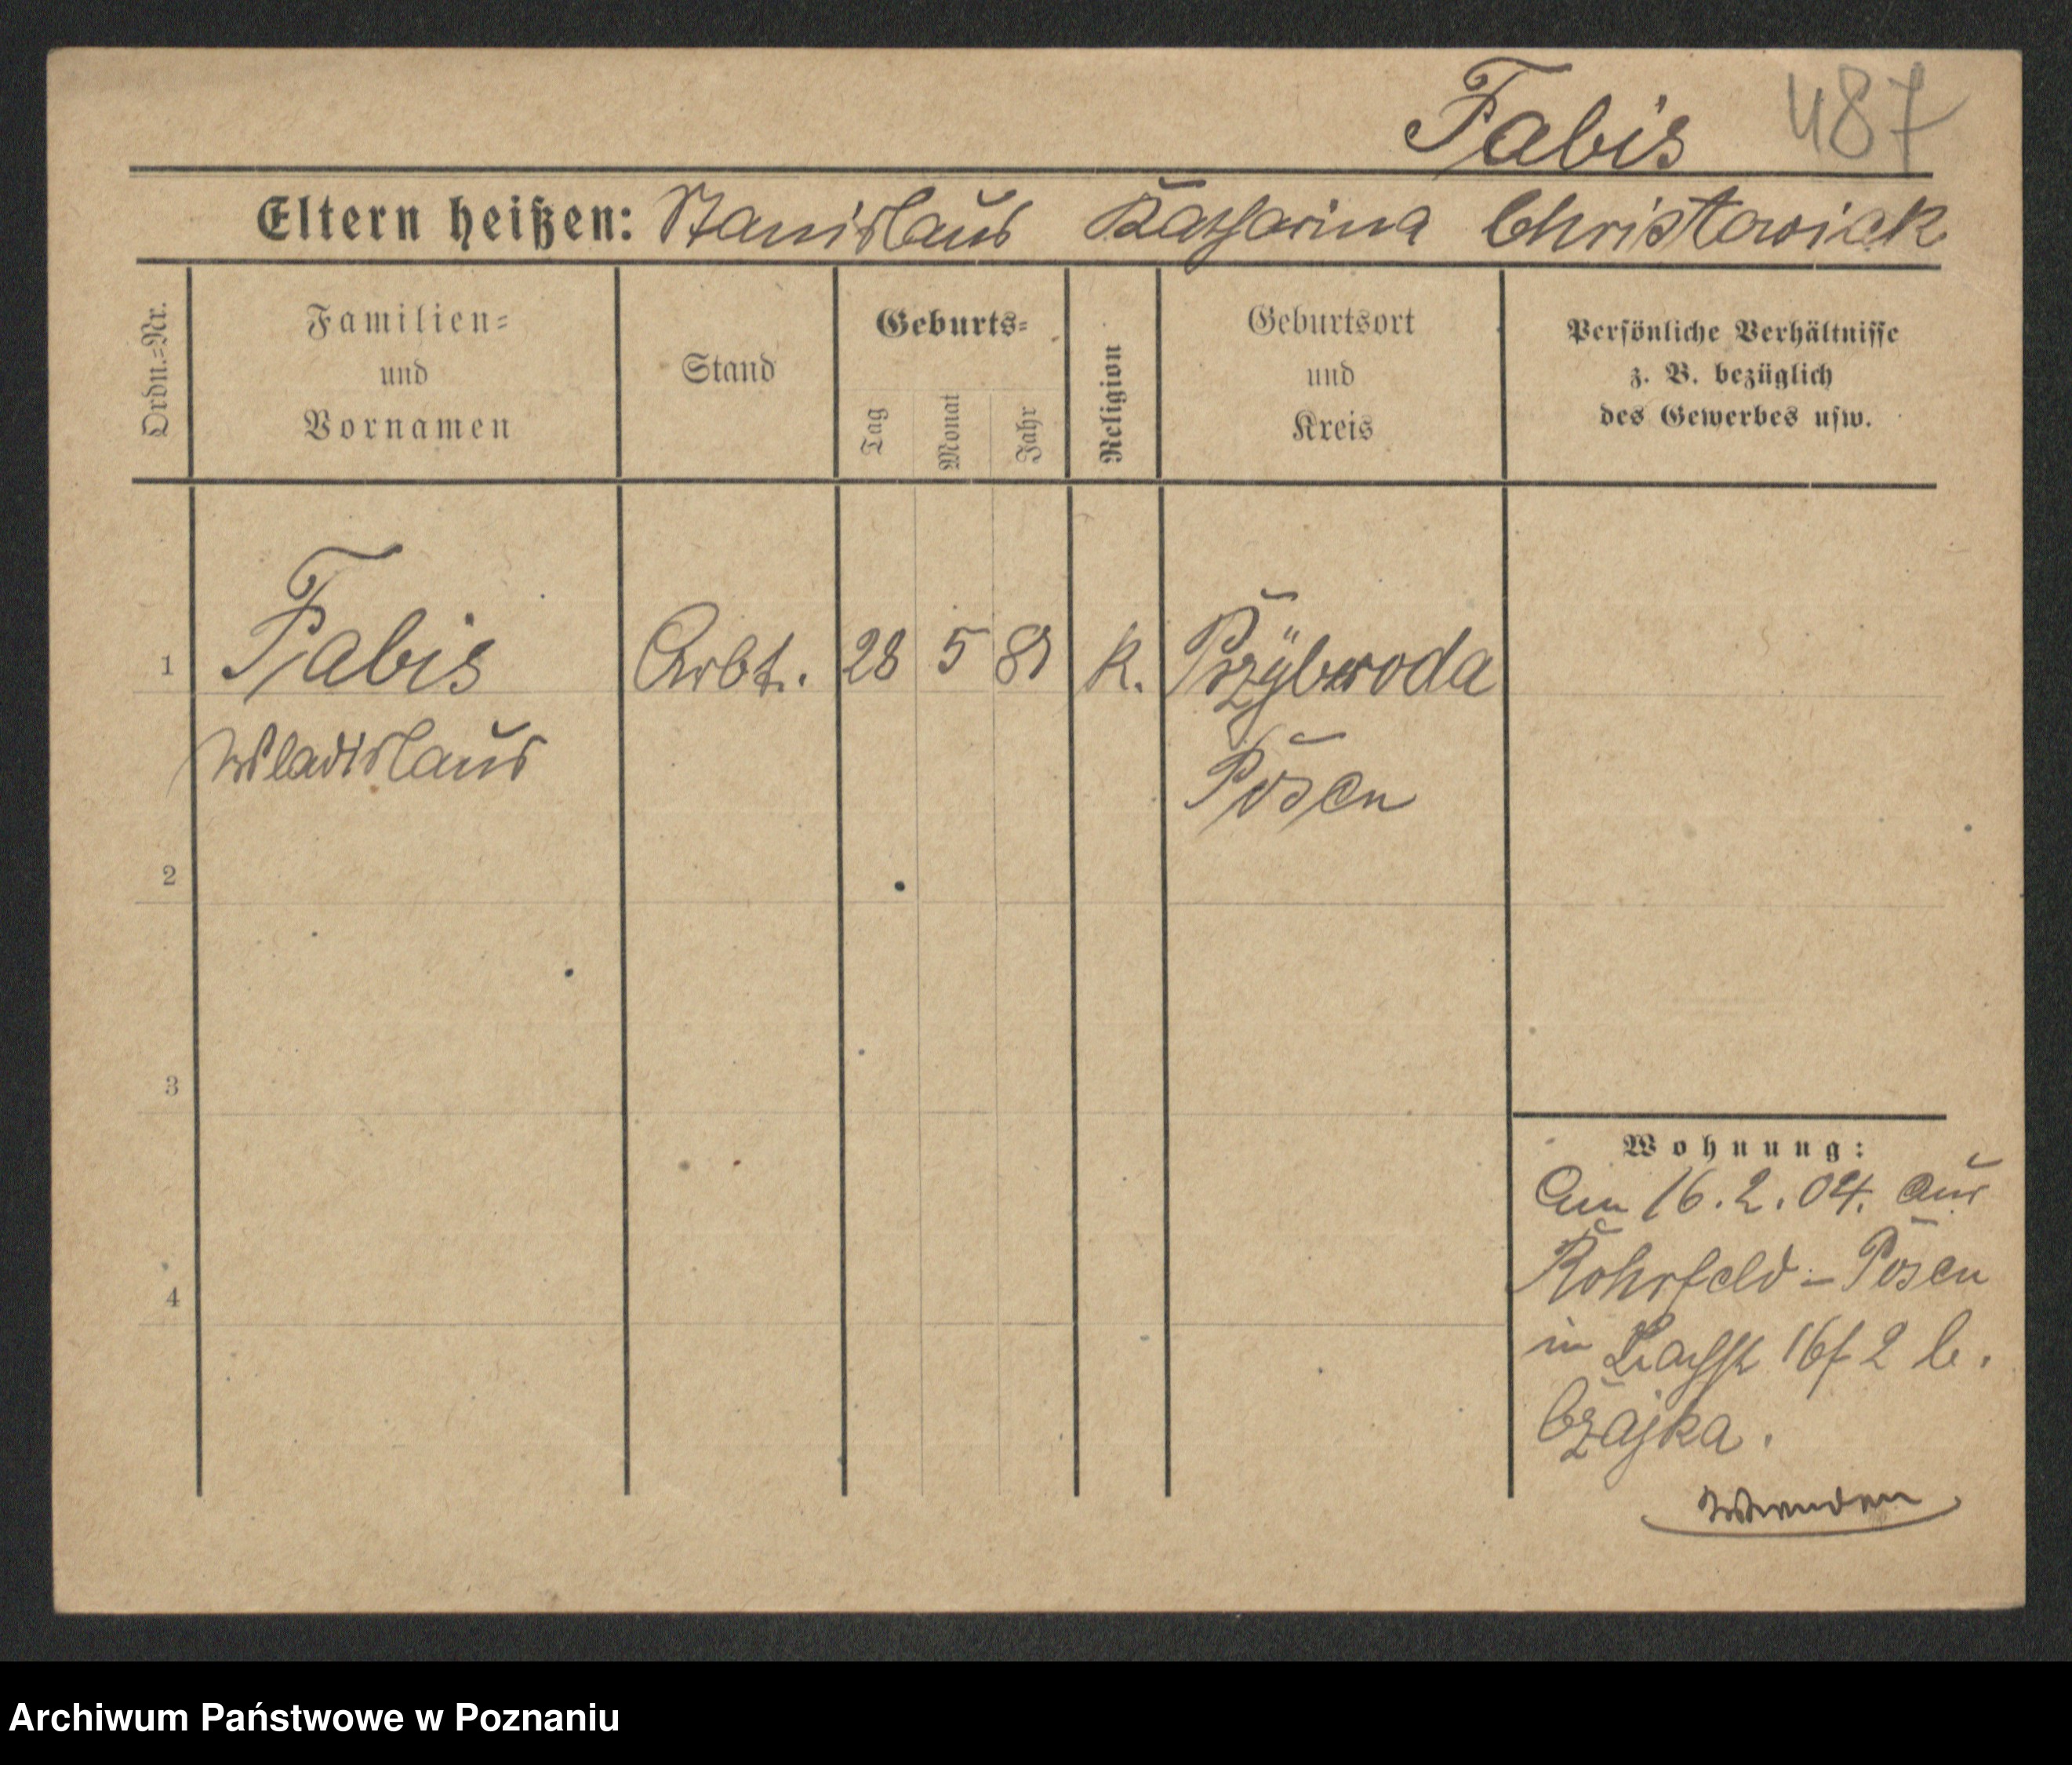 Fabis 487
Eltern heißen: Stanislaus Katharina Christowiak
Ordn.=Nr.
Familien=
und
Vornamen
Stand
Geburts=
Tag
Monat
Jahr
Religion
Geburtsort
und
Kreis
Persönliche Verhältnisse
z. B. bezüglich
des Gewerbes usw.
1 Fabis Arbt. 28 5 81 k. Przÿbroda
Wladislaus Posen
2
3
4
Wohnung:
Am 16.2.04. aus
Rohrfeld - Posen
in 16 2 b.
Czajka.
Wenden
Archiwum Państwowe w Poznaniu